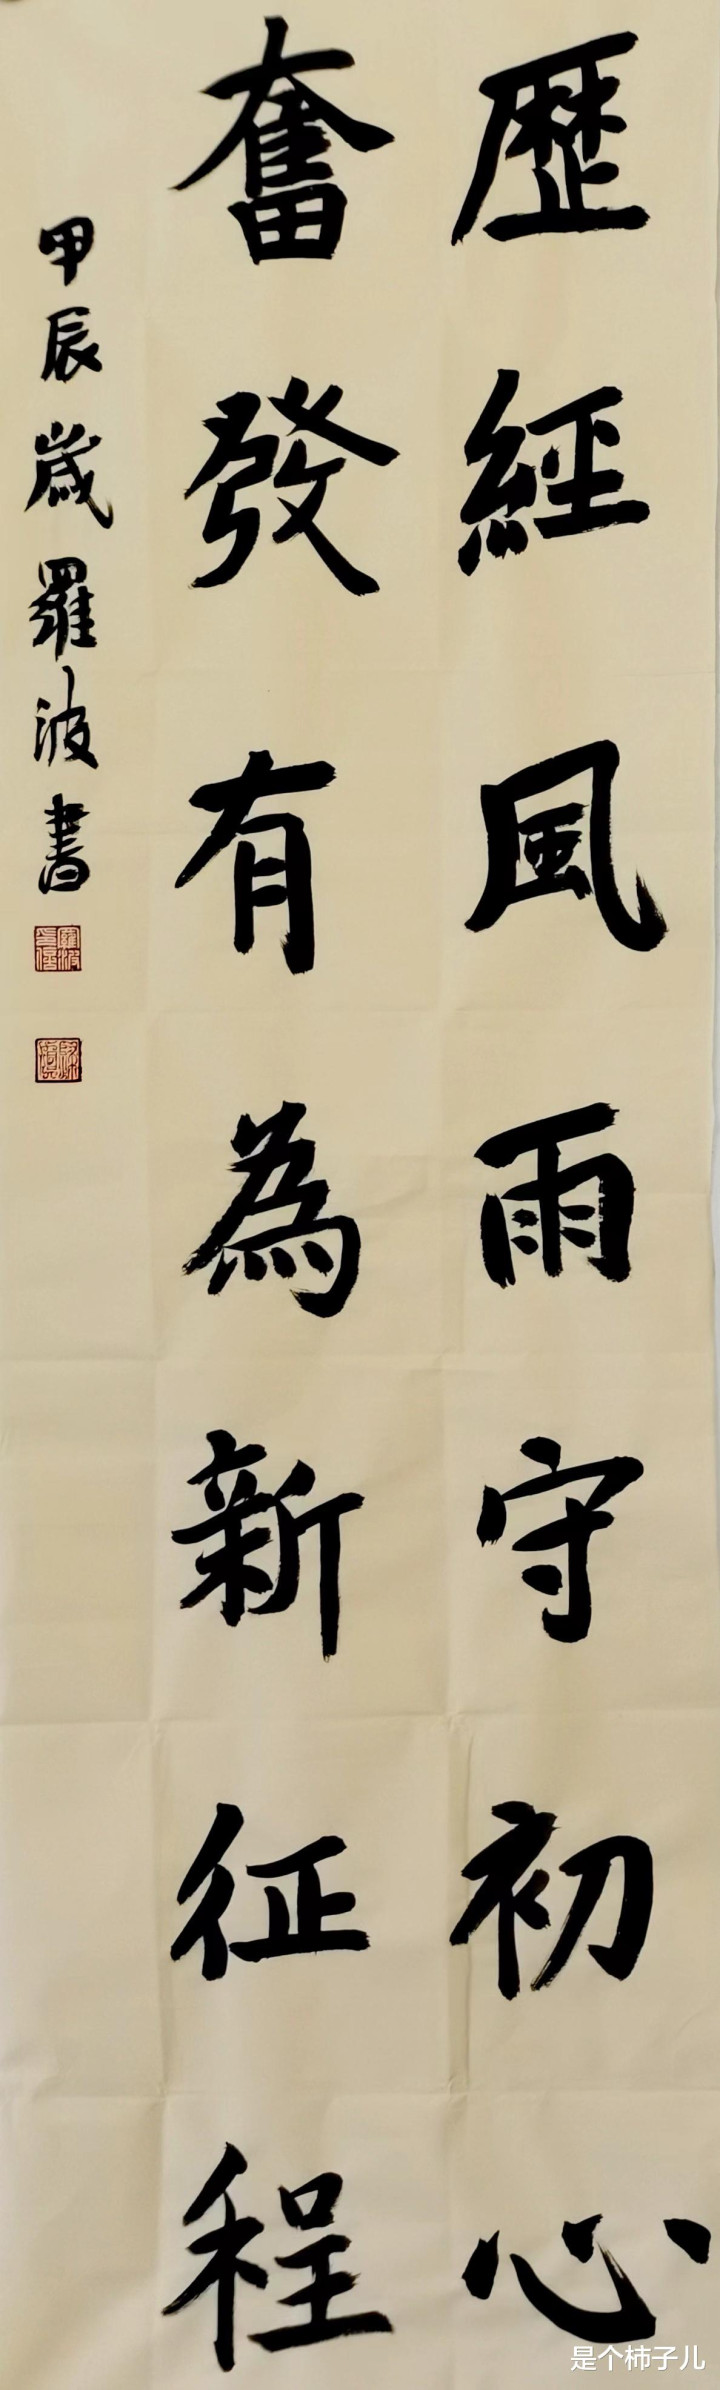 歷經風雨守初心
奮發有為新征程
甲辰歲羅波書
羅波
是个柿子儿